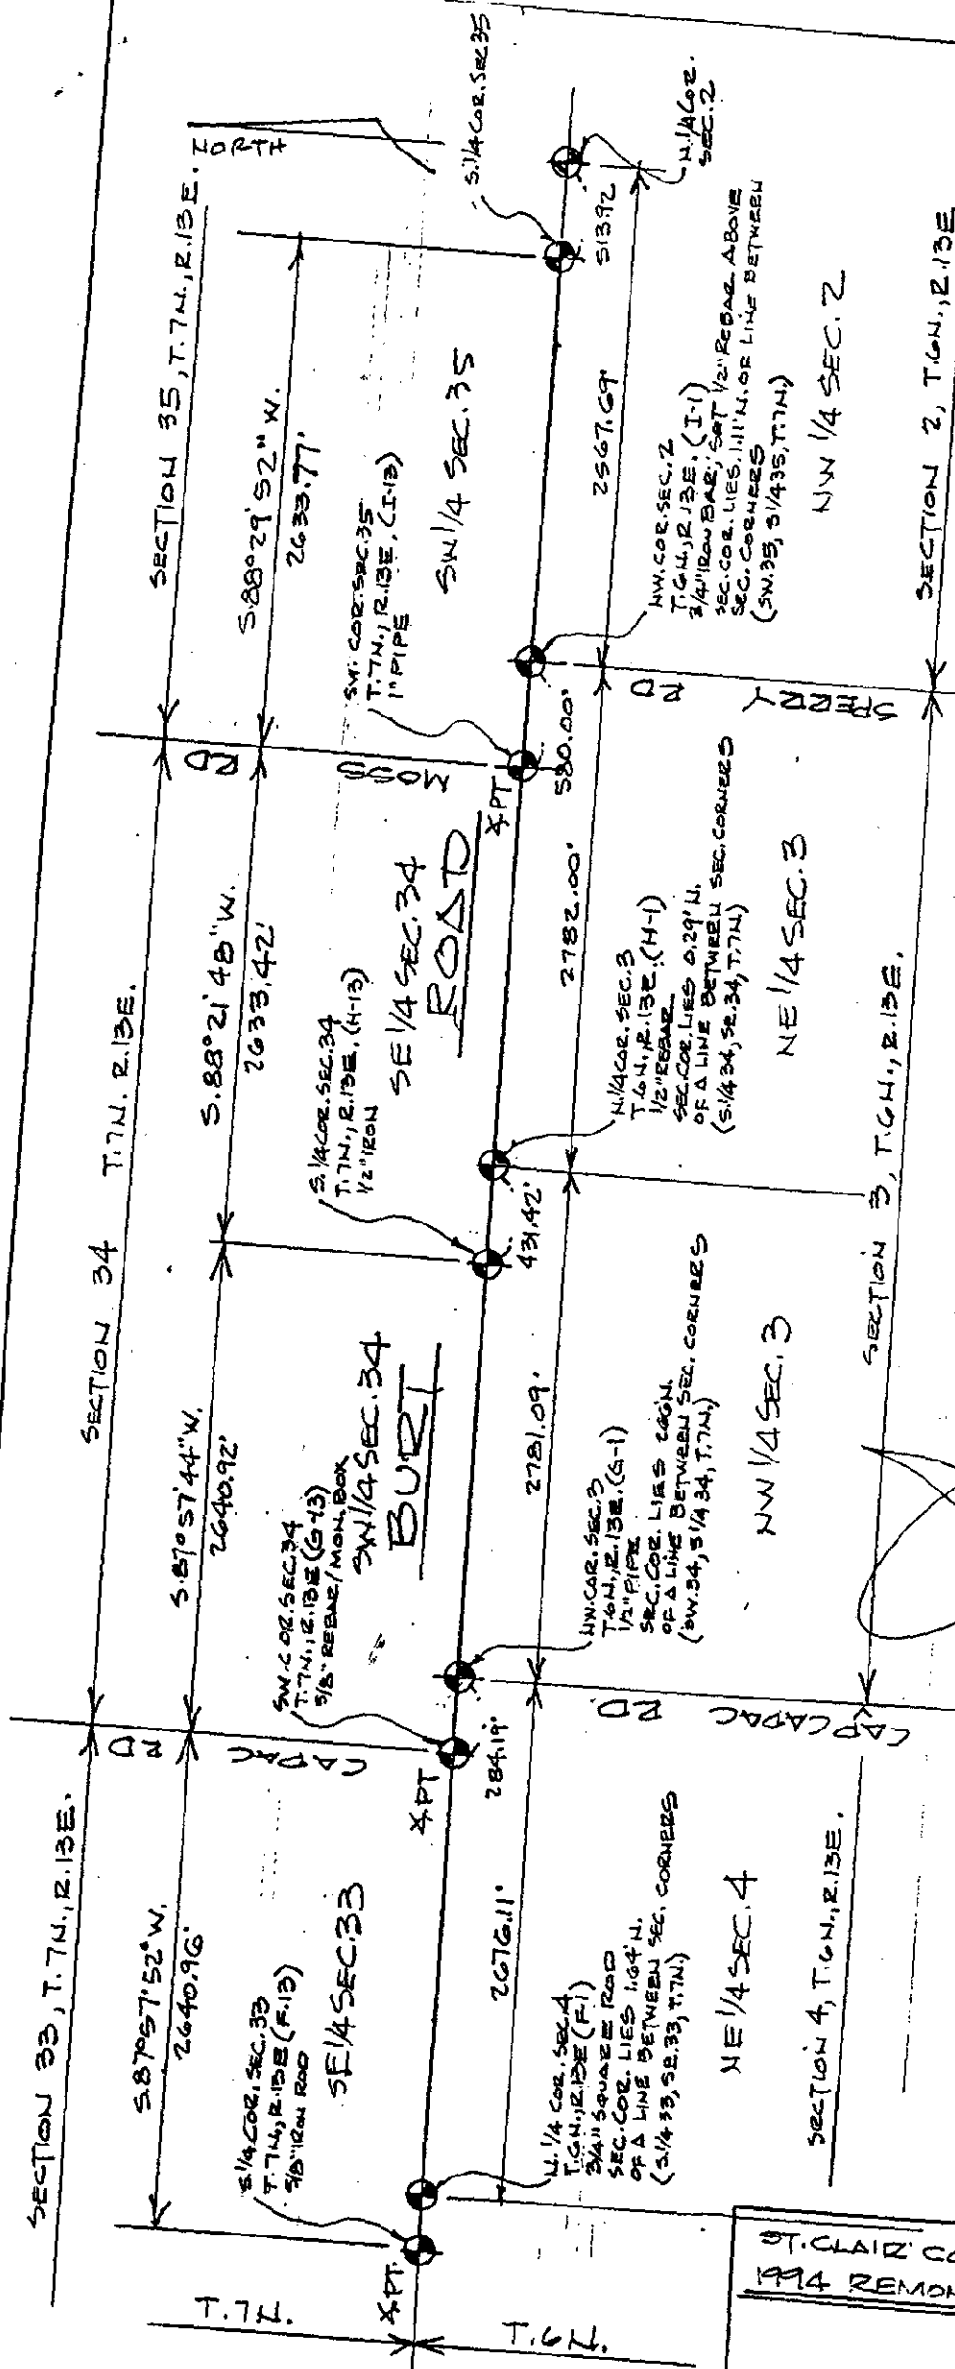 SECTION 33, T. 7N., R.13E.
SECTION 34 T.7N. R.13E.
SECTION 35, T. 7N., R.13E.
NORTH
S.87°57'52"W.
2640.96'
S.87°57'44"W.
2640.92'
S.88°21'48"W.
2633.42'
S.88°29'52"W.
2633.77'
CAPAC
RD
MOSS
RD
S.1/4 COR. SEC. 33
T. 7N., R.13E (F-13)
5/8" IRON ROD
SE 1/4 SEC. 33
SW. COR. SEC. 34
T. 7N., R.13E (G-13)
5/8" REBAR/MON. BOX
SW 1/4 SEC. 34
S.1/4 COR. SEC. 34
T. 7N., R.13E. (H-13)
1/2" IRON
SE 1/4 SEC. 34
SW. COR. SEC. 35
T. 7N., R.13E. (I-13)
1" PIPE
SW 1/4 SEC. 35
S.1/4 COR. SEC 35
BURT
ROAD
∡PT.
∡PT
∡PT
284.19'
431.42'
580.00'
513.92
T. 7N.
T. 6N.
2676.11'
2781.09'
2782.00'
2567.69'
N. 1/4 COR. SEC. 4
T. 6N., R.13E (F-1)
3/4" SQUARE ROD
SEC. COR. LIES 1.64' N.
OF A LINE BETWEEN SEC. CORNERS
(S.1/4 33, SE. 33, T. 7N.)
NE 1/4 SEC. 4
NW. COR. SEC. 3
T. 6N., R.13E. (G-1)
1/2" PIPE
SEC. COR. LIES N.
OF A LINE BETWEEN SEC. CORNERS
(SW. 34, S 1/4 34, T. 7N.)
NW 1/4 SEC. 3
N. 1/4 COR. SEC. 3
T. 6N., R.13E. (H-1)
1/2" REBAR
SEC. COR. LIES 0.29' N.
OF A LINE BETWEEN SEC. CORNERS
(S.1/4 34, SE. 34, T. 7N.)
NE 1/4 SEC. 3
NW. COR. SEC. 2
T. 6N., R.13E. (I-1)
3/4" IRON BAR; SET 1/2" REBAR ABOVE
SEC. COR. LIES 1.11' N. OF LINE BETWEEN
SEC. CORNERS
(SW. 35, S 1/4 35, T. 7N.)
NW 1/4 SEC. 2
N. 1/4 COR.
SEC. 2
CAPAC
RD
CAPAC
SPERRY
RD
SECTION 4, T. 6N., R.13E.
SECTION 3, T. 6N., R.13E.
SECTION 2, T. 6N., R.13E
ST. CLAIR CO
1994 REMON